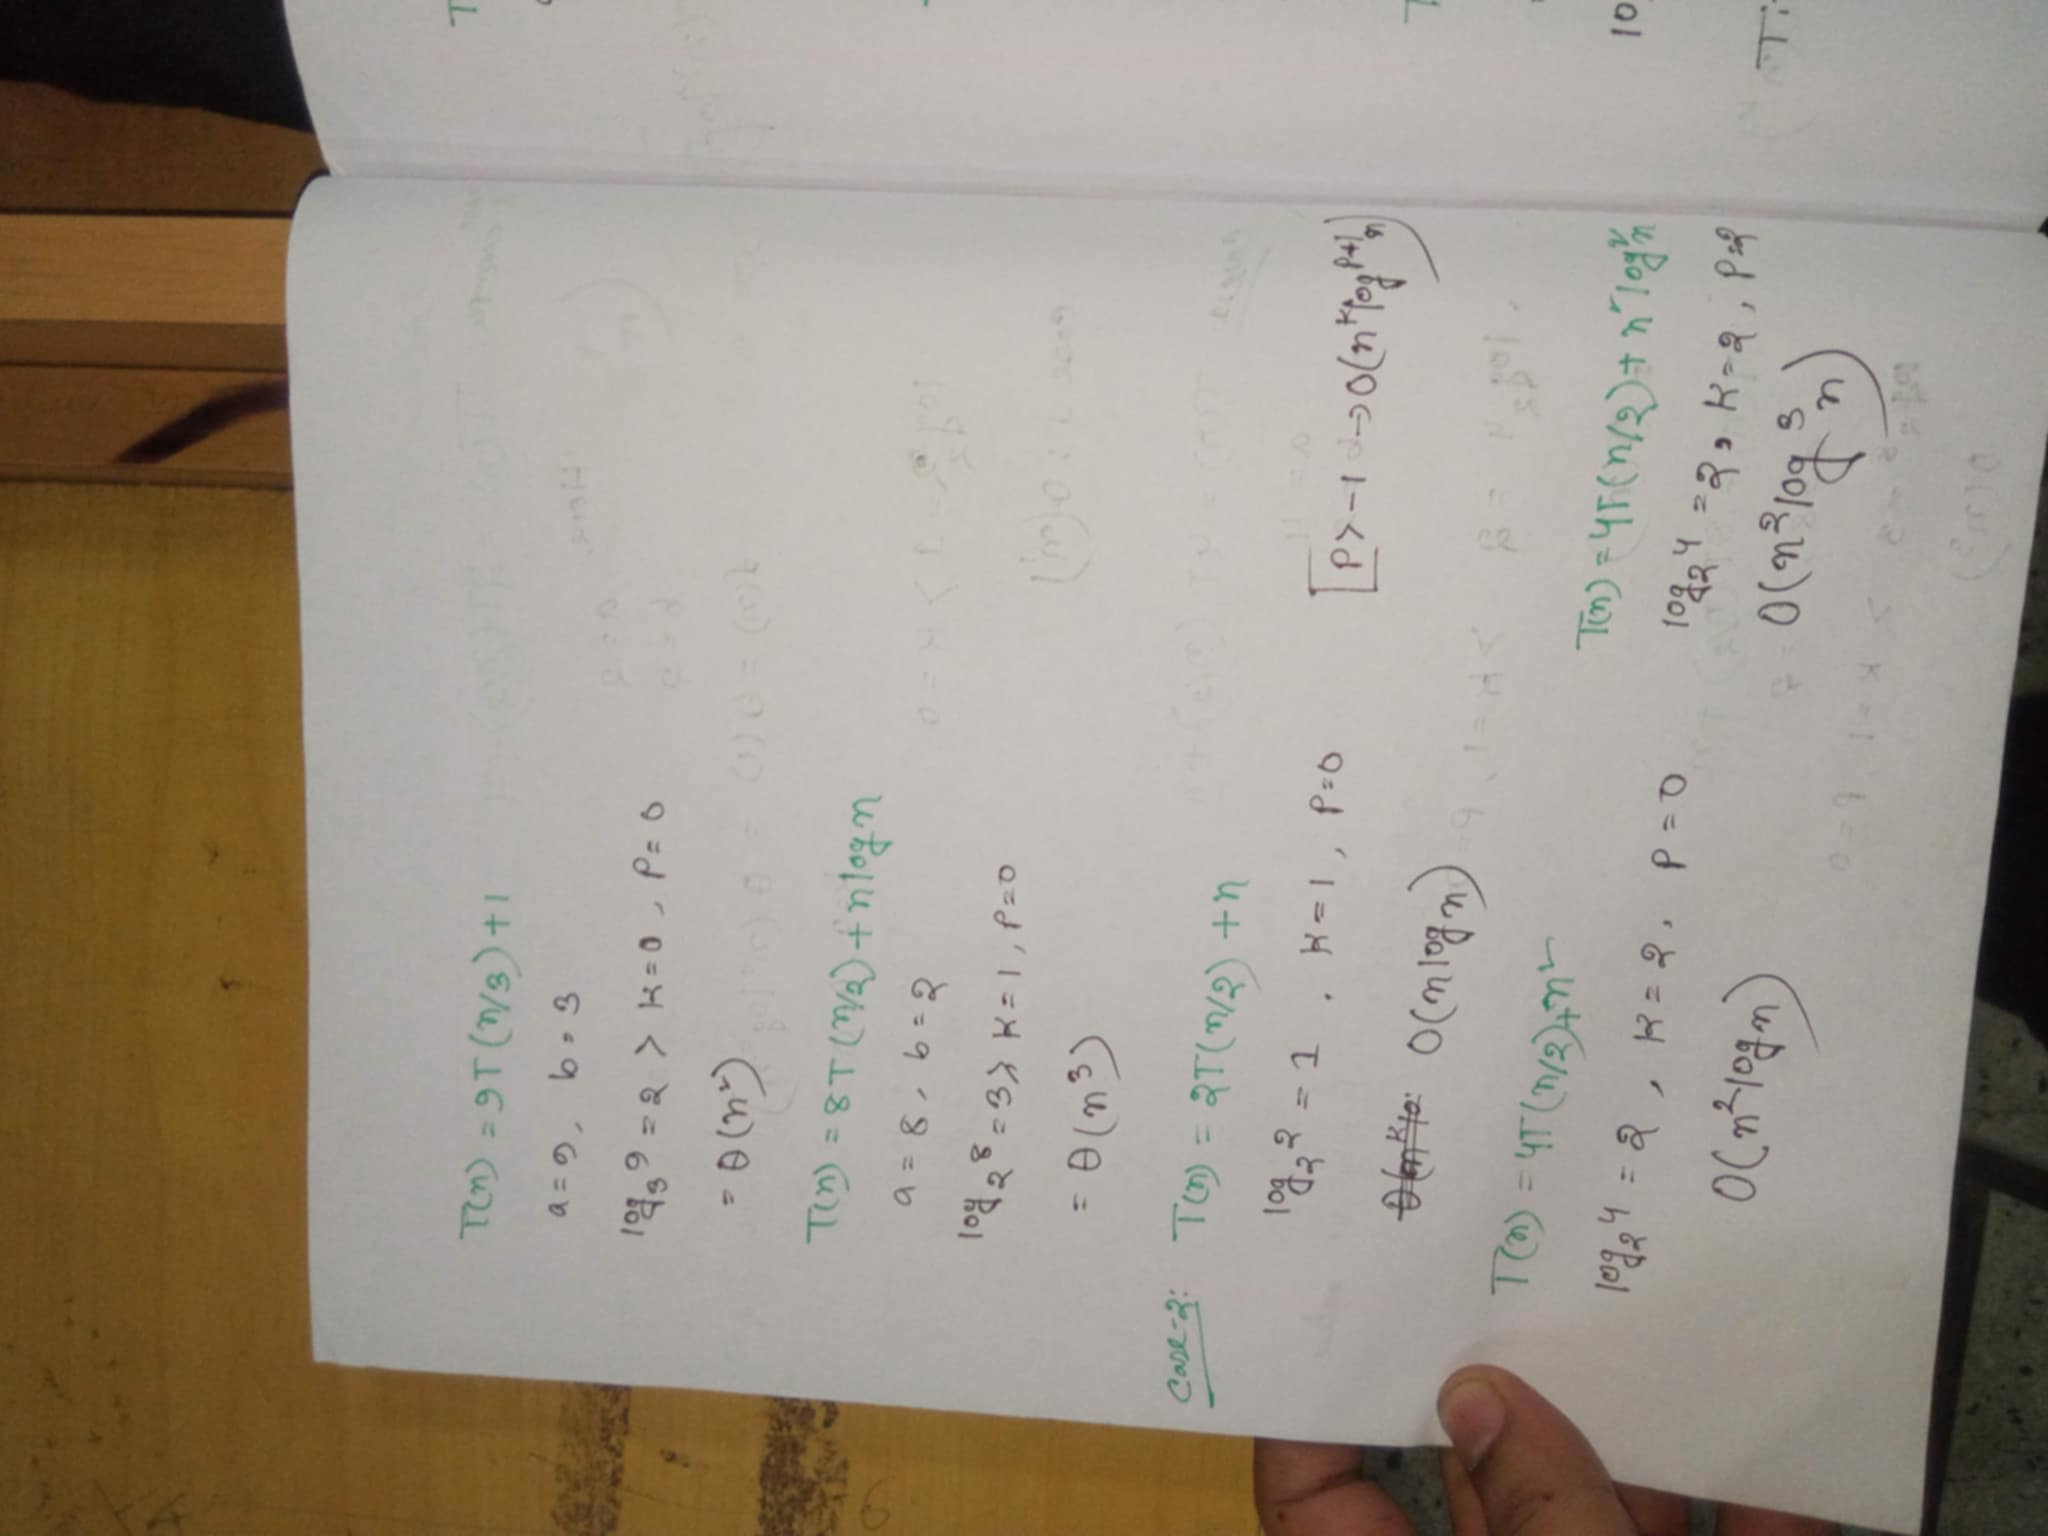 T(n) = 9T(n/3)+1
a=9, b=3
log₃9 = 2 > K=0, P=0
= θ(n²)
T(n) = 8T(n/2)+nlogn
a=8, b=2
log₂8 = 3 > K=1, P=0
= θ(n³)
Case-2: T(n) = 2T(n/2) +n
log₂2 = 1, K=1, P=0
[P>-1 → O(nᴷlogᴾ⁺¹n)
O(nlogn)
T(n) = 4T(n/2)+n²
log₂4 = 2, K=2, P=0
O(n²logn)
T(n) = 4T(n/2)+n²log²n
log₂4 = 2, K=2, P=2
O(n²log³n)